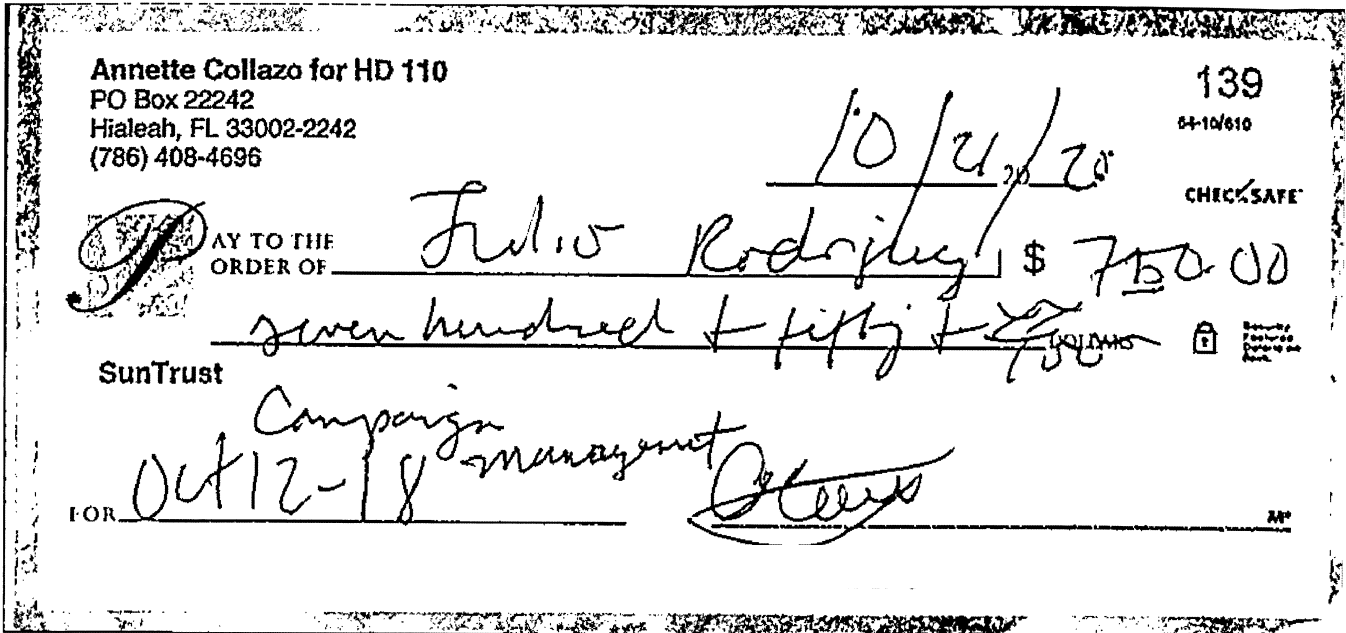 Annette Collazo for HD 110
PO Box 22242
Hialeah, FL 33002-2242
(786) 408-4696
139
64-10/610
10/21/20 20
CHECKSAFE
PAY TO THE ORDER OF Julio Rodriguez $ 750.00
seven hundred + fifty + /100 DOLLARS
SunTrust
Campaign Management
FOR Oct 12-18